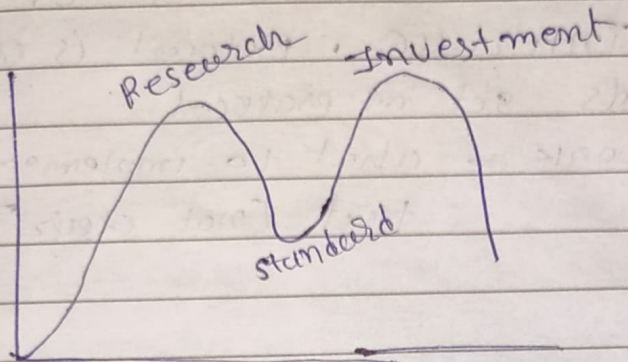 Research
Investment
standard